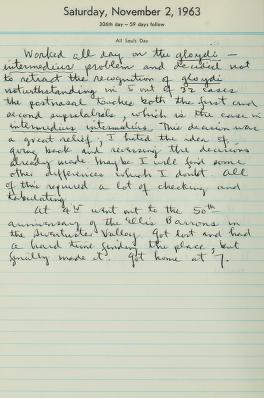 Saturday, November 2, 1963
306th day — 59 days follow
All Souls Day
Worked all day on the gloydi —
intermedius problem and decided not
to retract the recognition of gloydi
notwithstanding in 5 out of 32 cases
the postnasal touches both the first and
second supralabials, which is the case in
intermedius intermedius. This decision was
a great relief, I hated the idea of
going back and reversing the decisions
already made maybe I will find some
other differences which I doubt. All
of this required a lot of checking and
tabulating.
At 4 went out to the 50th
anniversary of the Ellis Barrons in
the Sweetwater Valley. Got lost and had
a hard time finding the place, but
finally made it. Got home at 7.